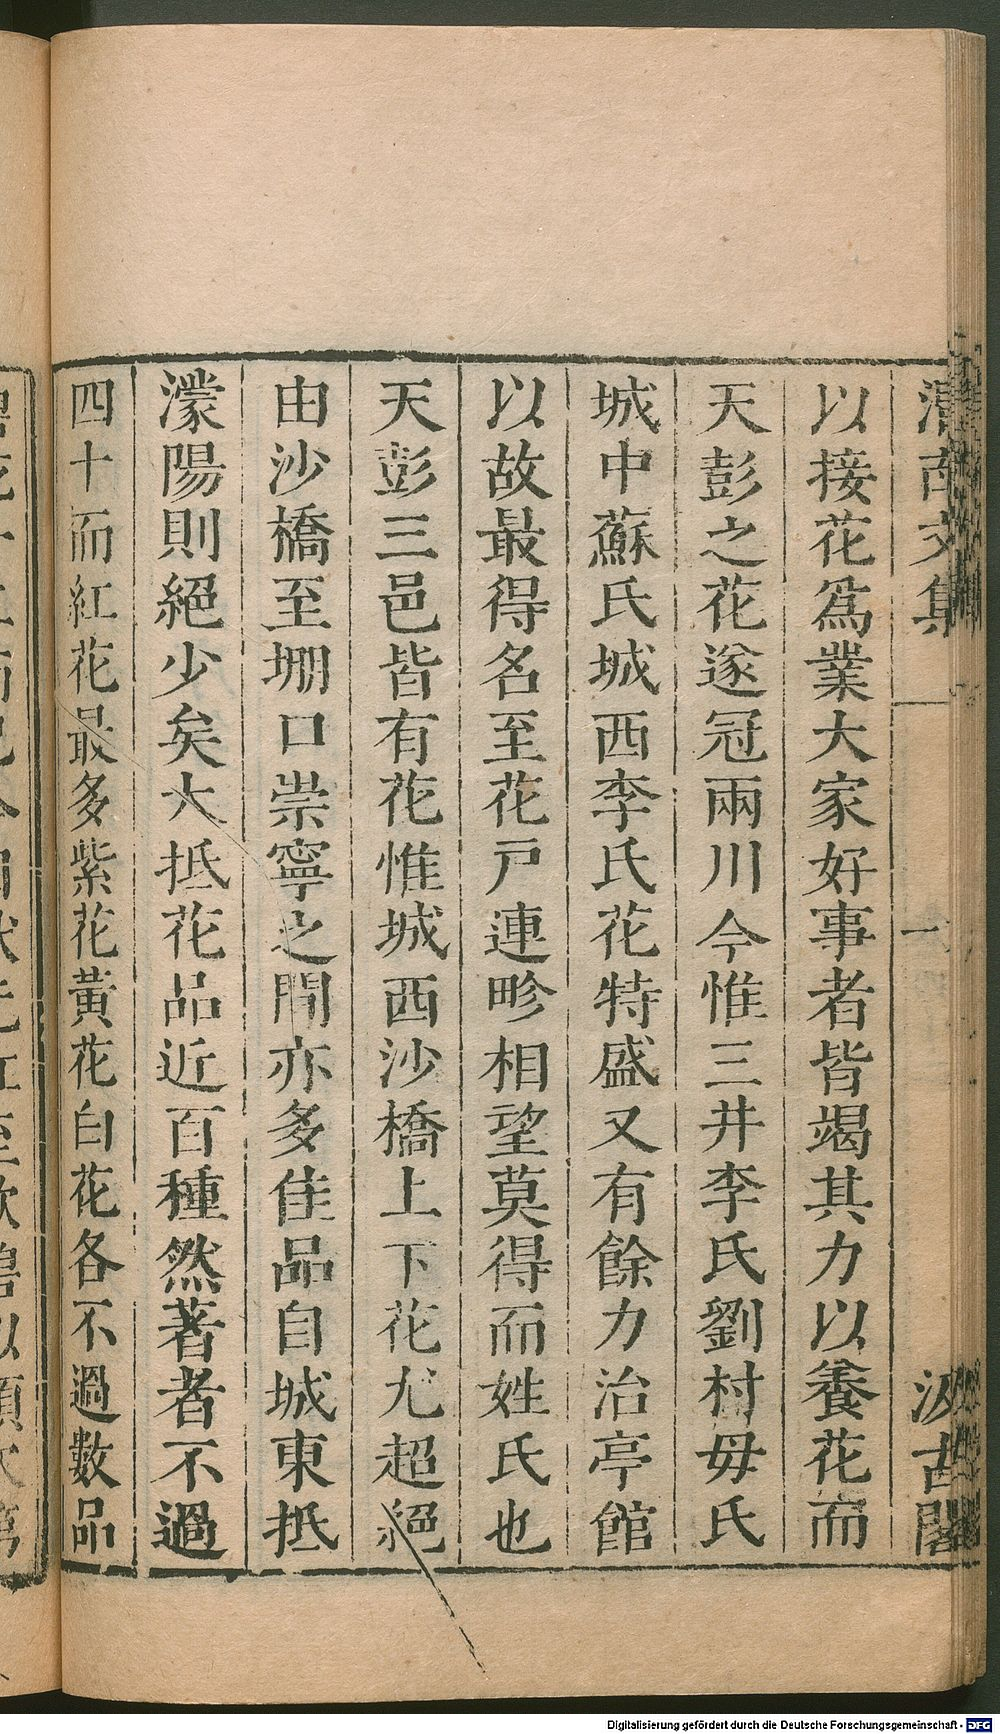 渭南文集 一 汲古閣
以接花爲業大家好事者皆竭其力以養花而
天彭之花遂冠兩川今惟三井李氏劉村毋氏
城中蘇氏城西李氏花特盛又有餘力治亭館
以故最得名至花戸連畛相望莫得而姓氏也
天彭三邑皆有花惟城西沙橋上下花尤超絕
由沙橋至堋口崇寧之間亦多佳品自城東抵
濛陽則絕少矣大抵花品近百種然著者不過
四十而紅花最多紫花黃花白花各不過數品
Digitalisierung gefördert durch die Deutsche Forschungsgemeinschaft - DFG